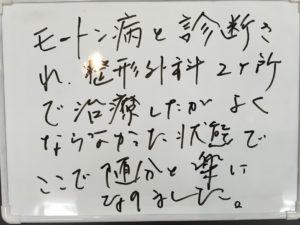 モートン病と診断さ
れ、整形外科2ヶ所
で治療したがよく
ならなかった状態で
ここで随分と楽に
なりました。